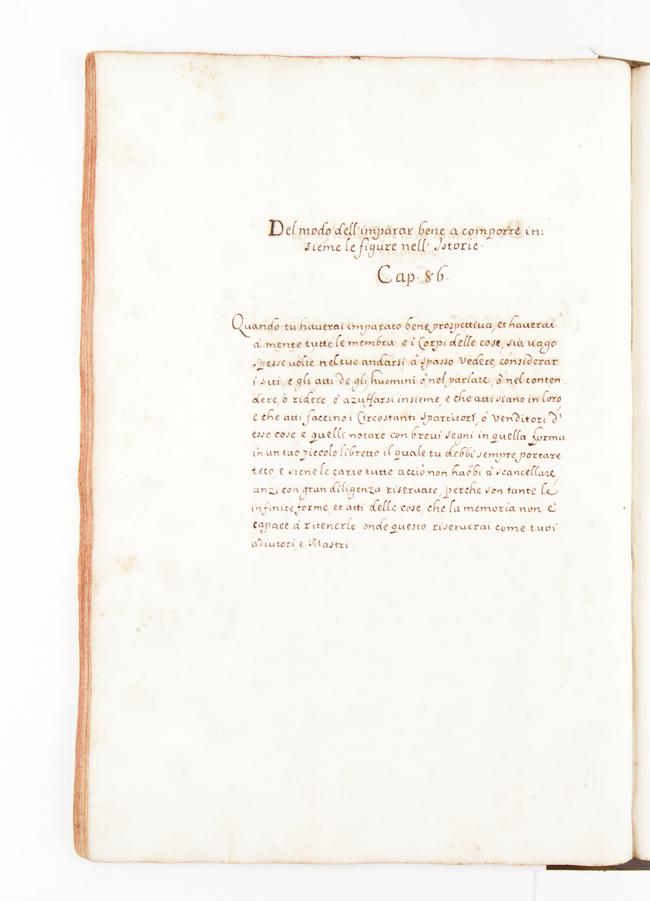 Del modo dell' imparar bene a comporre in:
sieme le figure nell' Istorie.
Cap. 86.
Quando tu haverai imparato bene prospettiva, et haverai
à mente tutte le membra, e i Corpi delle cose, sia vago
spesse volte nel tuo andarsi à spasso vedere, considerar
i siti, e gli atti de gli huomini ò nel parlare, ò nel conten
dere, ò ridere, ò azuffarsi insieme, e che atti siano in loro
e che atti faccino i Circostanti spartitori, ò venditori d'
esse cose, e quelli notare con brevi segni in quella forma
in un tuo piccolo libretto il quale tu debbi sempre portare
teco, e siene le carte tutte acciò non habbi à scancellare,
anzi con gran diligenza riservate, perche son tante le
infinite forme, et atti delle cose, che la memoria non è
capace à ritenerle onde questo riserverai come tuoi
adiutori, e Mastri.